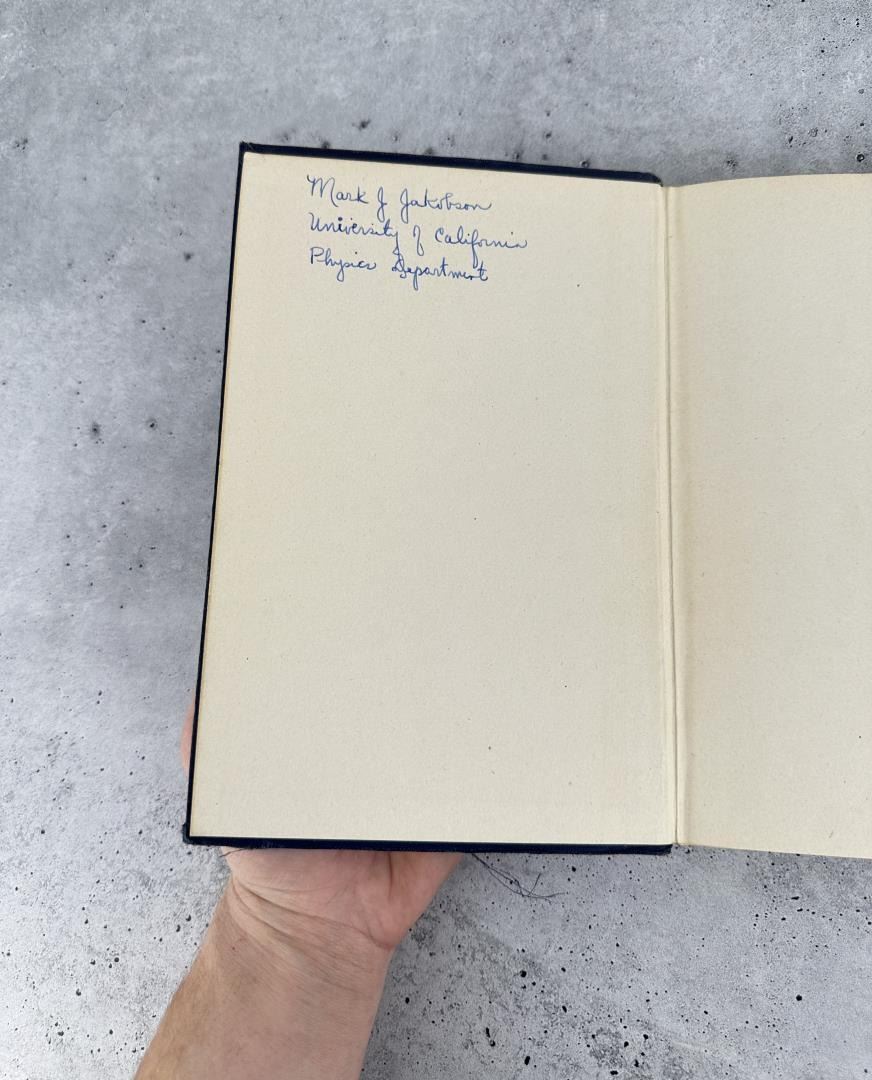 Mark J Jakobson
University of California
Physics Department